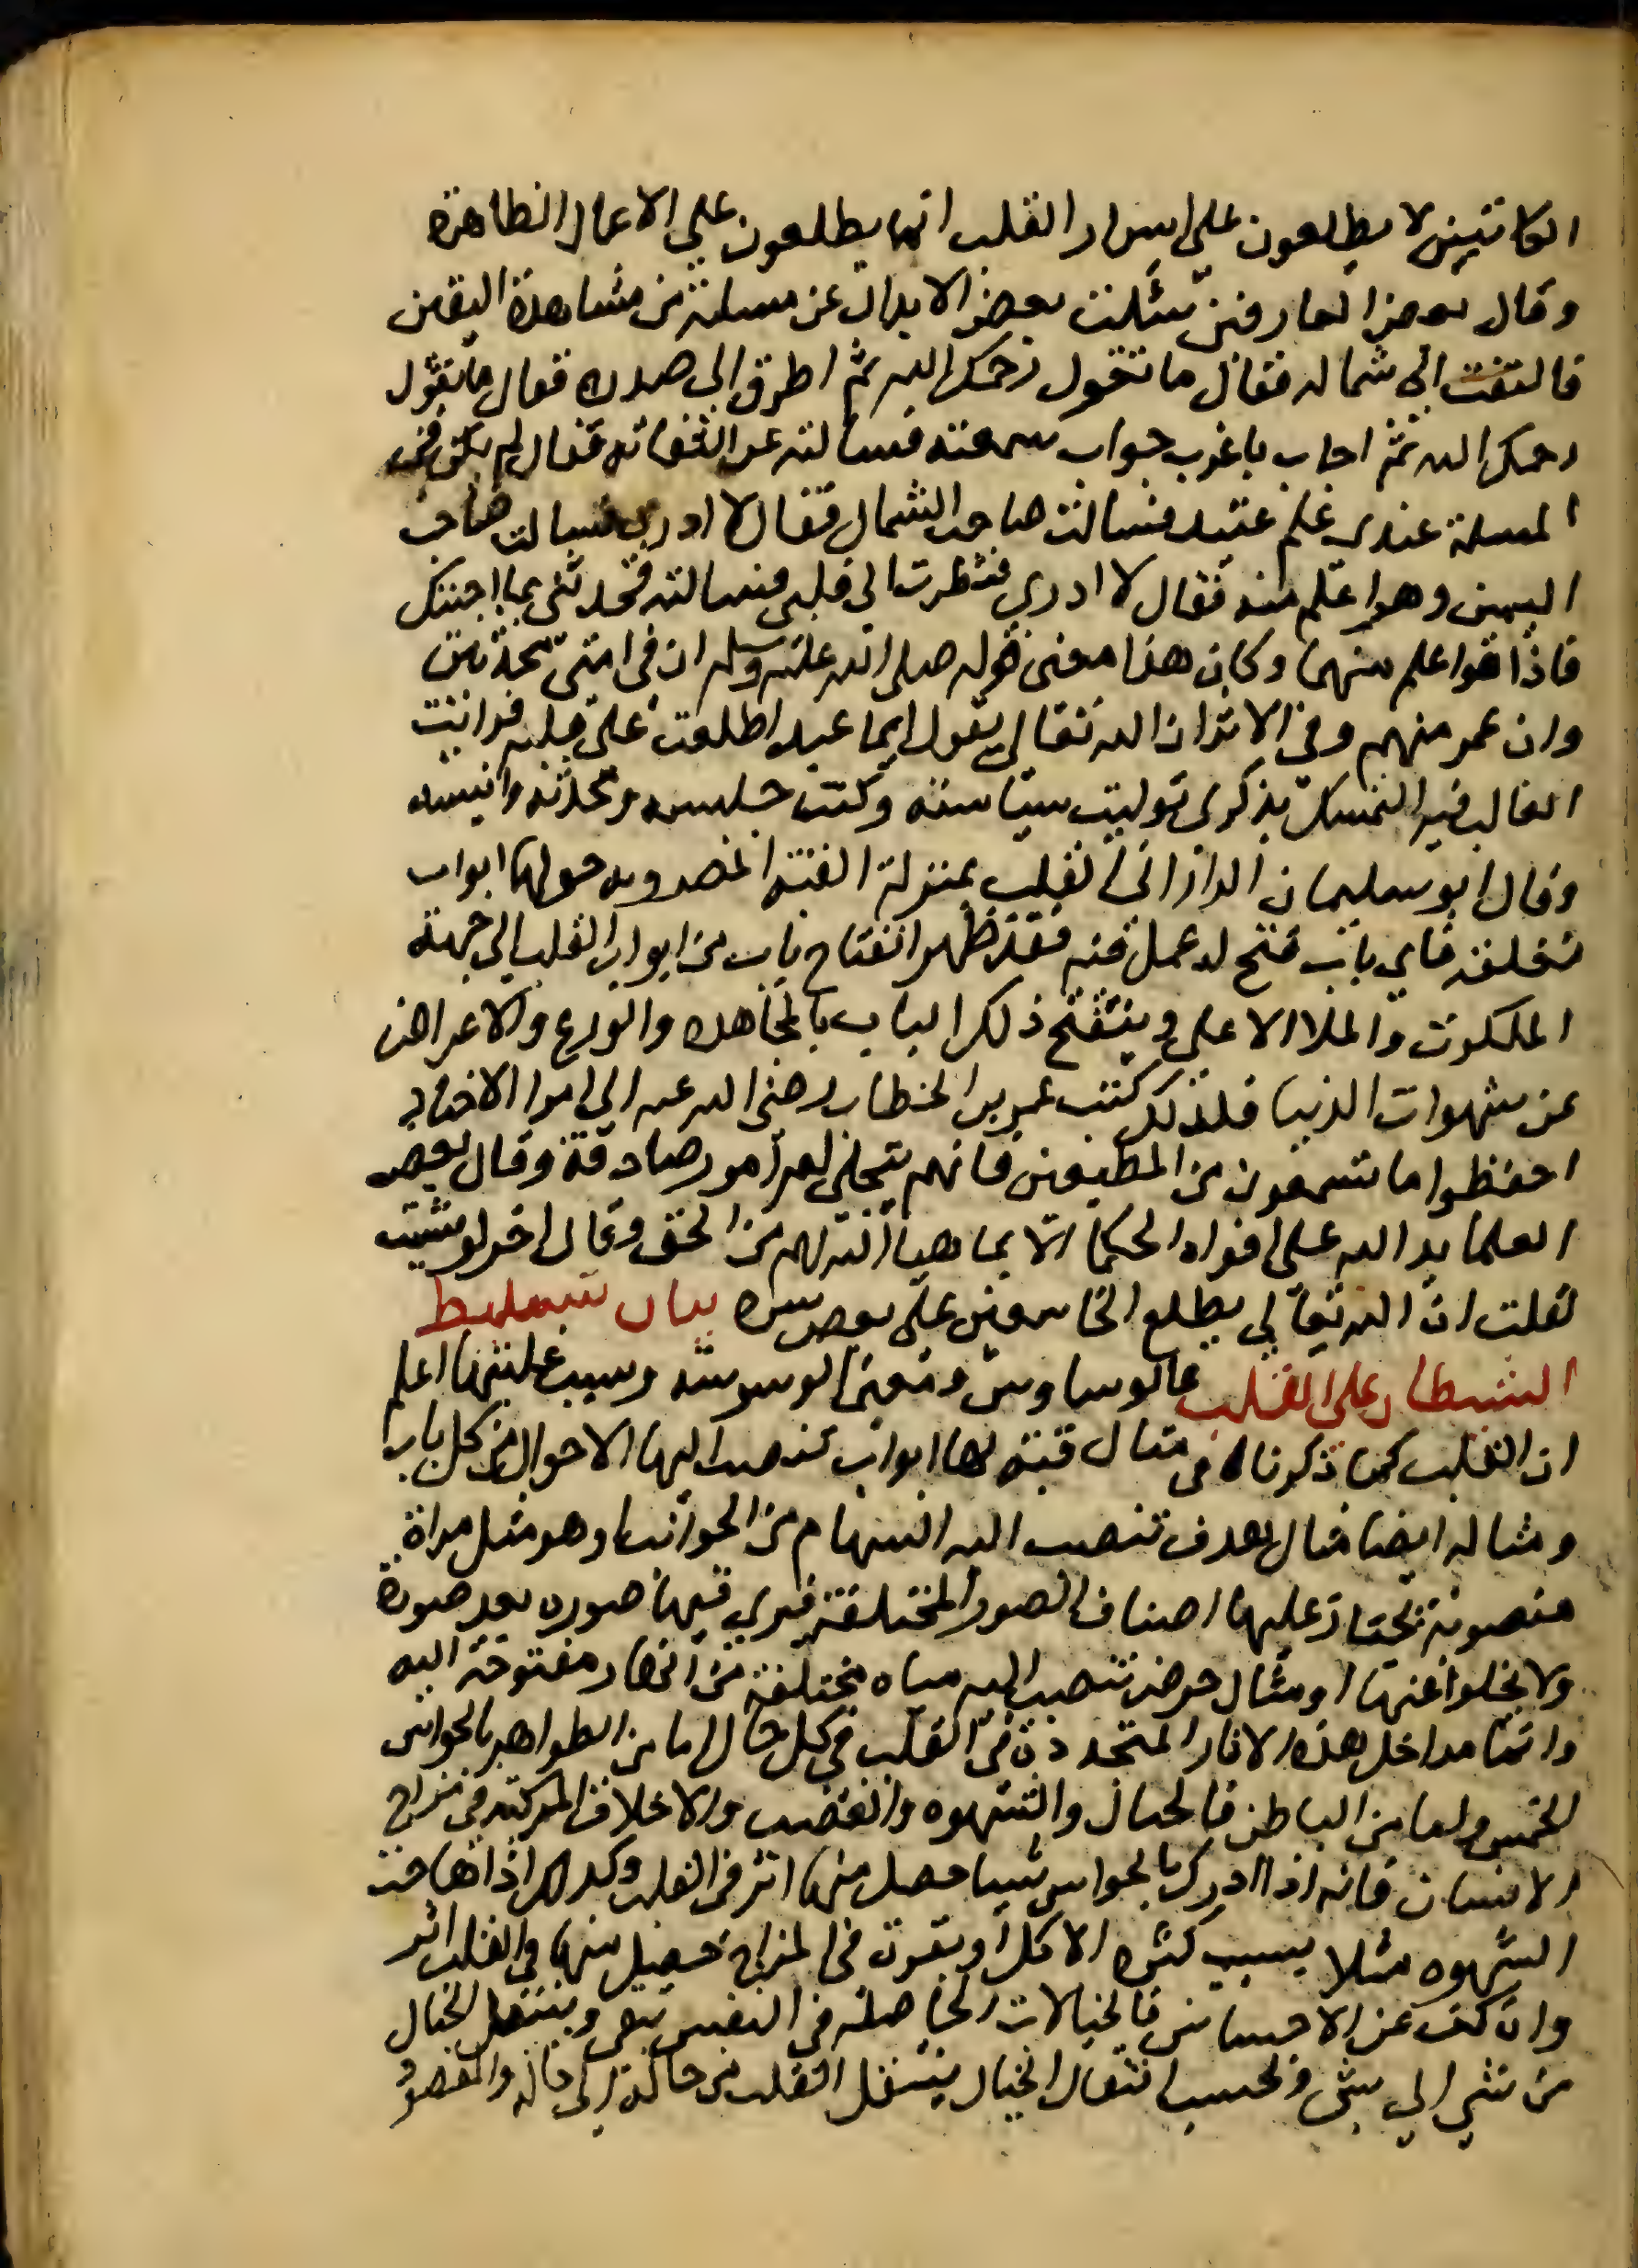 الكاتبين لا يطلعون على اسرار القلب انما يطلعون على الاعمال الظاهرة
وقال بعض العارفين سئلت بعض الابدال عن مسلة من مشاهدة اليقين
فالتفت الى شماله فقال ما تقول رحمك الله ثم اطرق الى صدره فقال ما تقول
رحمك الله ثم اجاب باغرب جواب سمعته فسالته عن التفاته فقال لم يكن في
المسلة عندي علم عتيد فسالت صاحب الشمال فقال لا ادري فسالت صاحب
اليمين وهو اعلم منه فقال لا ادري فنظرت الى قلبي فسالته فحدثني بما اجبتك
فاذا هوا علم منهما وكان هذا معنى قوله صلى الله عليه وسلم ان في امتي محدثين
وان عمر منهم وفي الاثر ان الله تعالى يقول ايما عبد اطلعت على قلبه فرايت
الغالب فيه التمسك بذكري توليت سياسته وكنت جليسه ومحدثه وانيسه
وقال ابو سليمان الداراني القلب بمنزلة القبة المضروبه حولها ابواب
مغلقه فاي باب فتح له عمل فيه فقد ظهر انفتاح باب من ابواب القلب الى جهة
الملكوت والملا الاعلى وينفتح ذلك الباب بالمجاهده والورع والاعراض
عن شهوات الدنيا فلذلك كتب عمر بن الخطاب رضي الله عنه الى امرا الاجناد
احفظوا ما تسمعون من المطيعين فانهم يتجلى لهم امور صادقة وقال بعض
العلما يد الله على افواه الحكما الا بما هيا الله لهم من الحق وقال اخر لو شيت
لقلت ان الله تعالى يطلع الخاشعين على بعض سره بيان تسليط
الشيطان على القلب بالوساوس ومعنى الوسوسه وسبب غلبتها اعلم
ان القلب كما ذكرناه في مثال قبة لها ابواب تنصب اليها الاحوال من كل باب
ومثاله ايضا مثال هدف تنصب اليه السهام من الجوانب او هو مثل مراة
منصوبة تجتاز عليها اصناف الصور المختلفة فيرى فيها صوره بعد صورة
ولا يخلوا عنها او مثال حوض تنصب اليه مياه مختلفة من انهار مفتوحة اليه
وانما مداخل هذه الاثار المتجددة في القلب في كل حال اما من الظواهر بالحواس
الخمس واما من الباطن فالخيال والشهوه والغضب والاخلاق المركبه في مزاج
الانسان فانه اذا ادرك بالحواس شيا حصل منها اثر في القلب وكذلك اذا هاجت
الشهوه مثلا بسبب كثره الاكل او بقوة في المزاج حصل منها في القلب اثر
وان كف عن الاحساس فالخيالات الحاصله في النفس تبقى وينتقل الخيال
من شي الى شي وبحسب انتقال الخيال ينتقل القلب من حالة الى حاله والمقصود